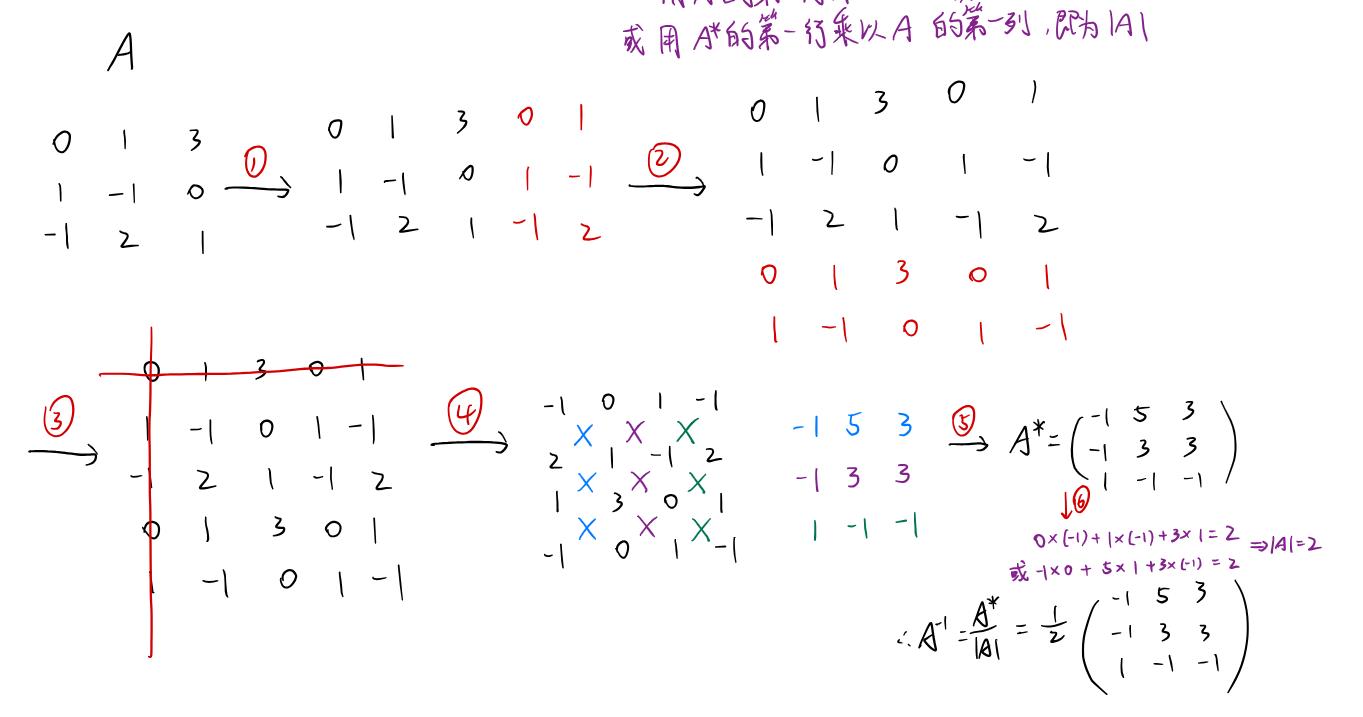 或用A*的第一行乘以A的第一列,即为|A|
A
0 1 3
1 -1 0
-1 2 1
①
0 1 3 0 1
1 -1 0 1 -1
-1 2 1 -1 2
②
0 1 3 0 1
1 -1 0 1 -1
-1 2 1 -1 2
0 1 3 0 1
1 -1 0 1 -1
③
0 1 3 0 1
1 -1 0 1 -1
-1 2 1 -1 2
0 1 3 0 1
1 -1 0 1 -1
④
-1 0 1 -1
× × ×
2 1 -1 2
× × ×
1 3 0 1
× × ×
-1 0 1 -1
-1 5 3
-1 3 3
1 -1 -1
⑤
A* = ( -1 5 3
-1 3 3
1 -1 -1 )
↓⑥
0×(-1)+1×(-1)+3×1=2 ⇒|A|=2
或 -1×0+5×1+3×(-1)=2
∴A⁻¹=A*/|A| = 1/2 ( -1 5 3
-1 3 3
1 -1 -1 )